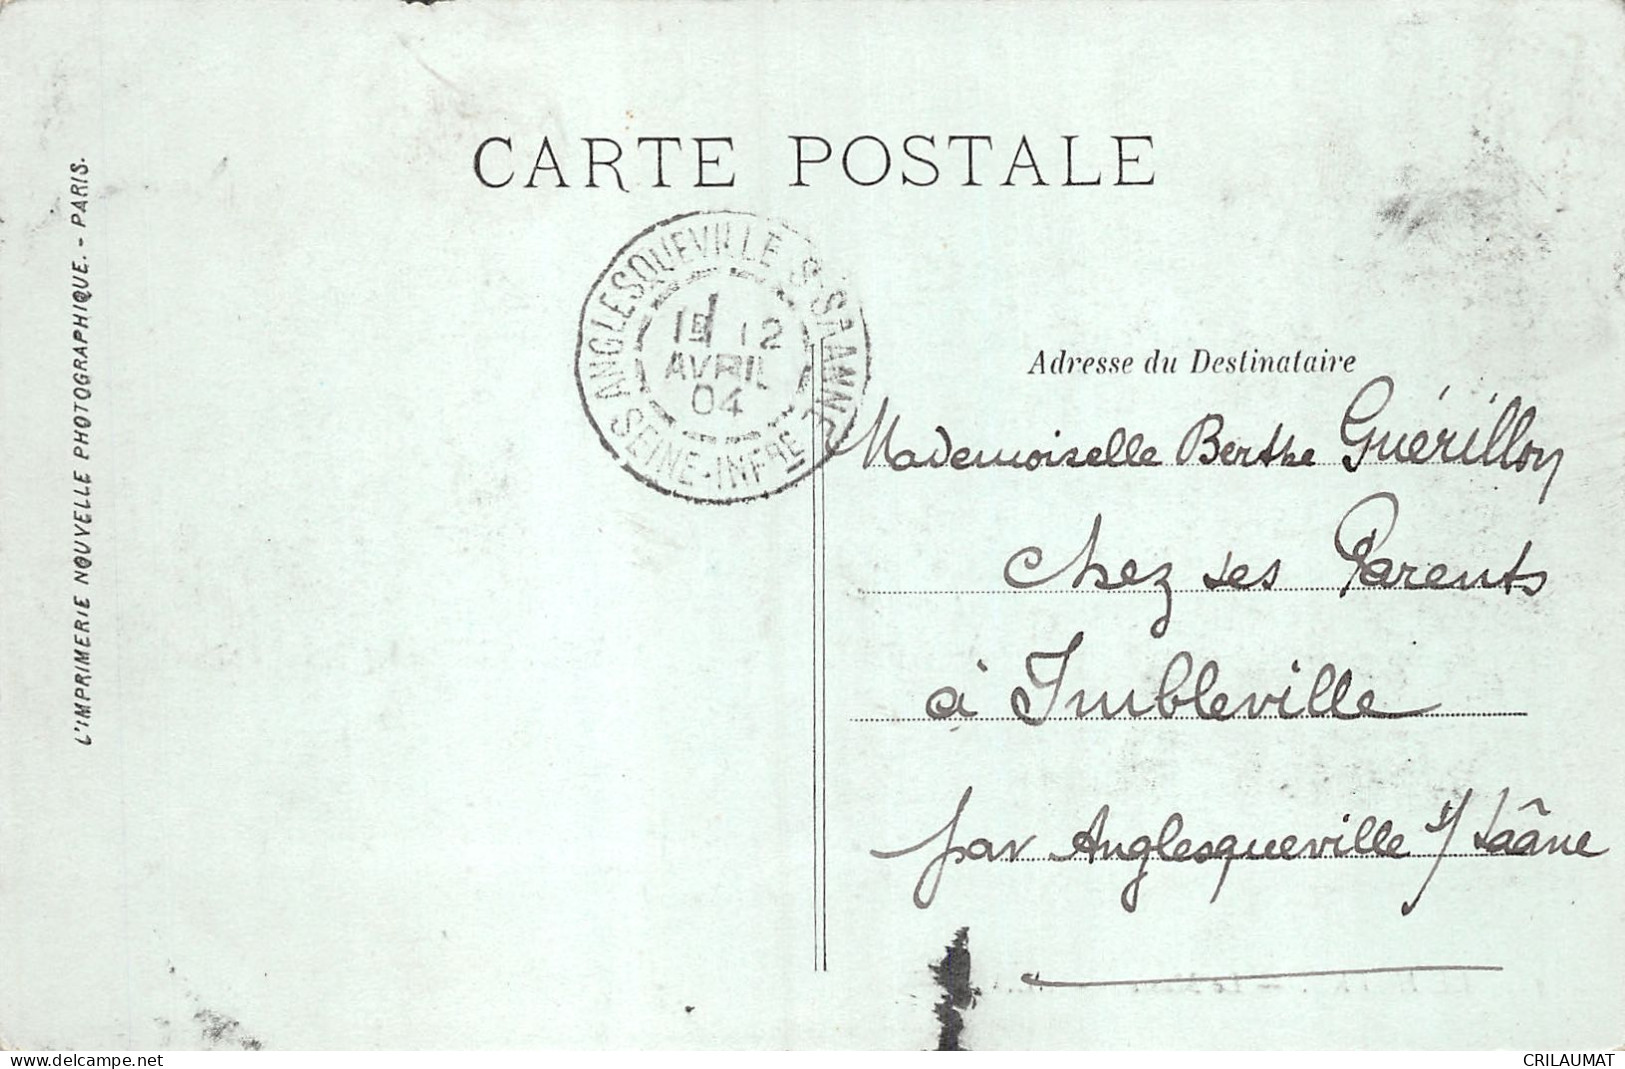 CARTE POSTALE
L'IMPRIMERIE NOUVELLE PHOTOGRAPHIQUE. - PARIS.
ANGLESQUEVILLE S. SAANE
12
AVRIL
04
SEINE-INFRE
Adresse du Destinataire
Mademoiselle Berthe Guérillon
chez ses Parents
à Imbleville
par Anglesqueville s/ Saâne
www.delcampe.net
CRILAUMAT